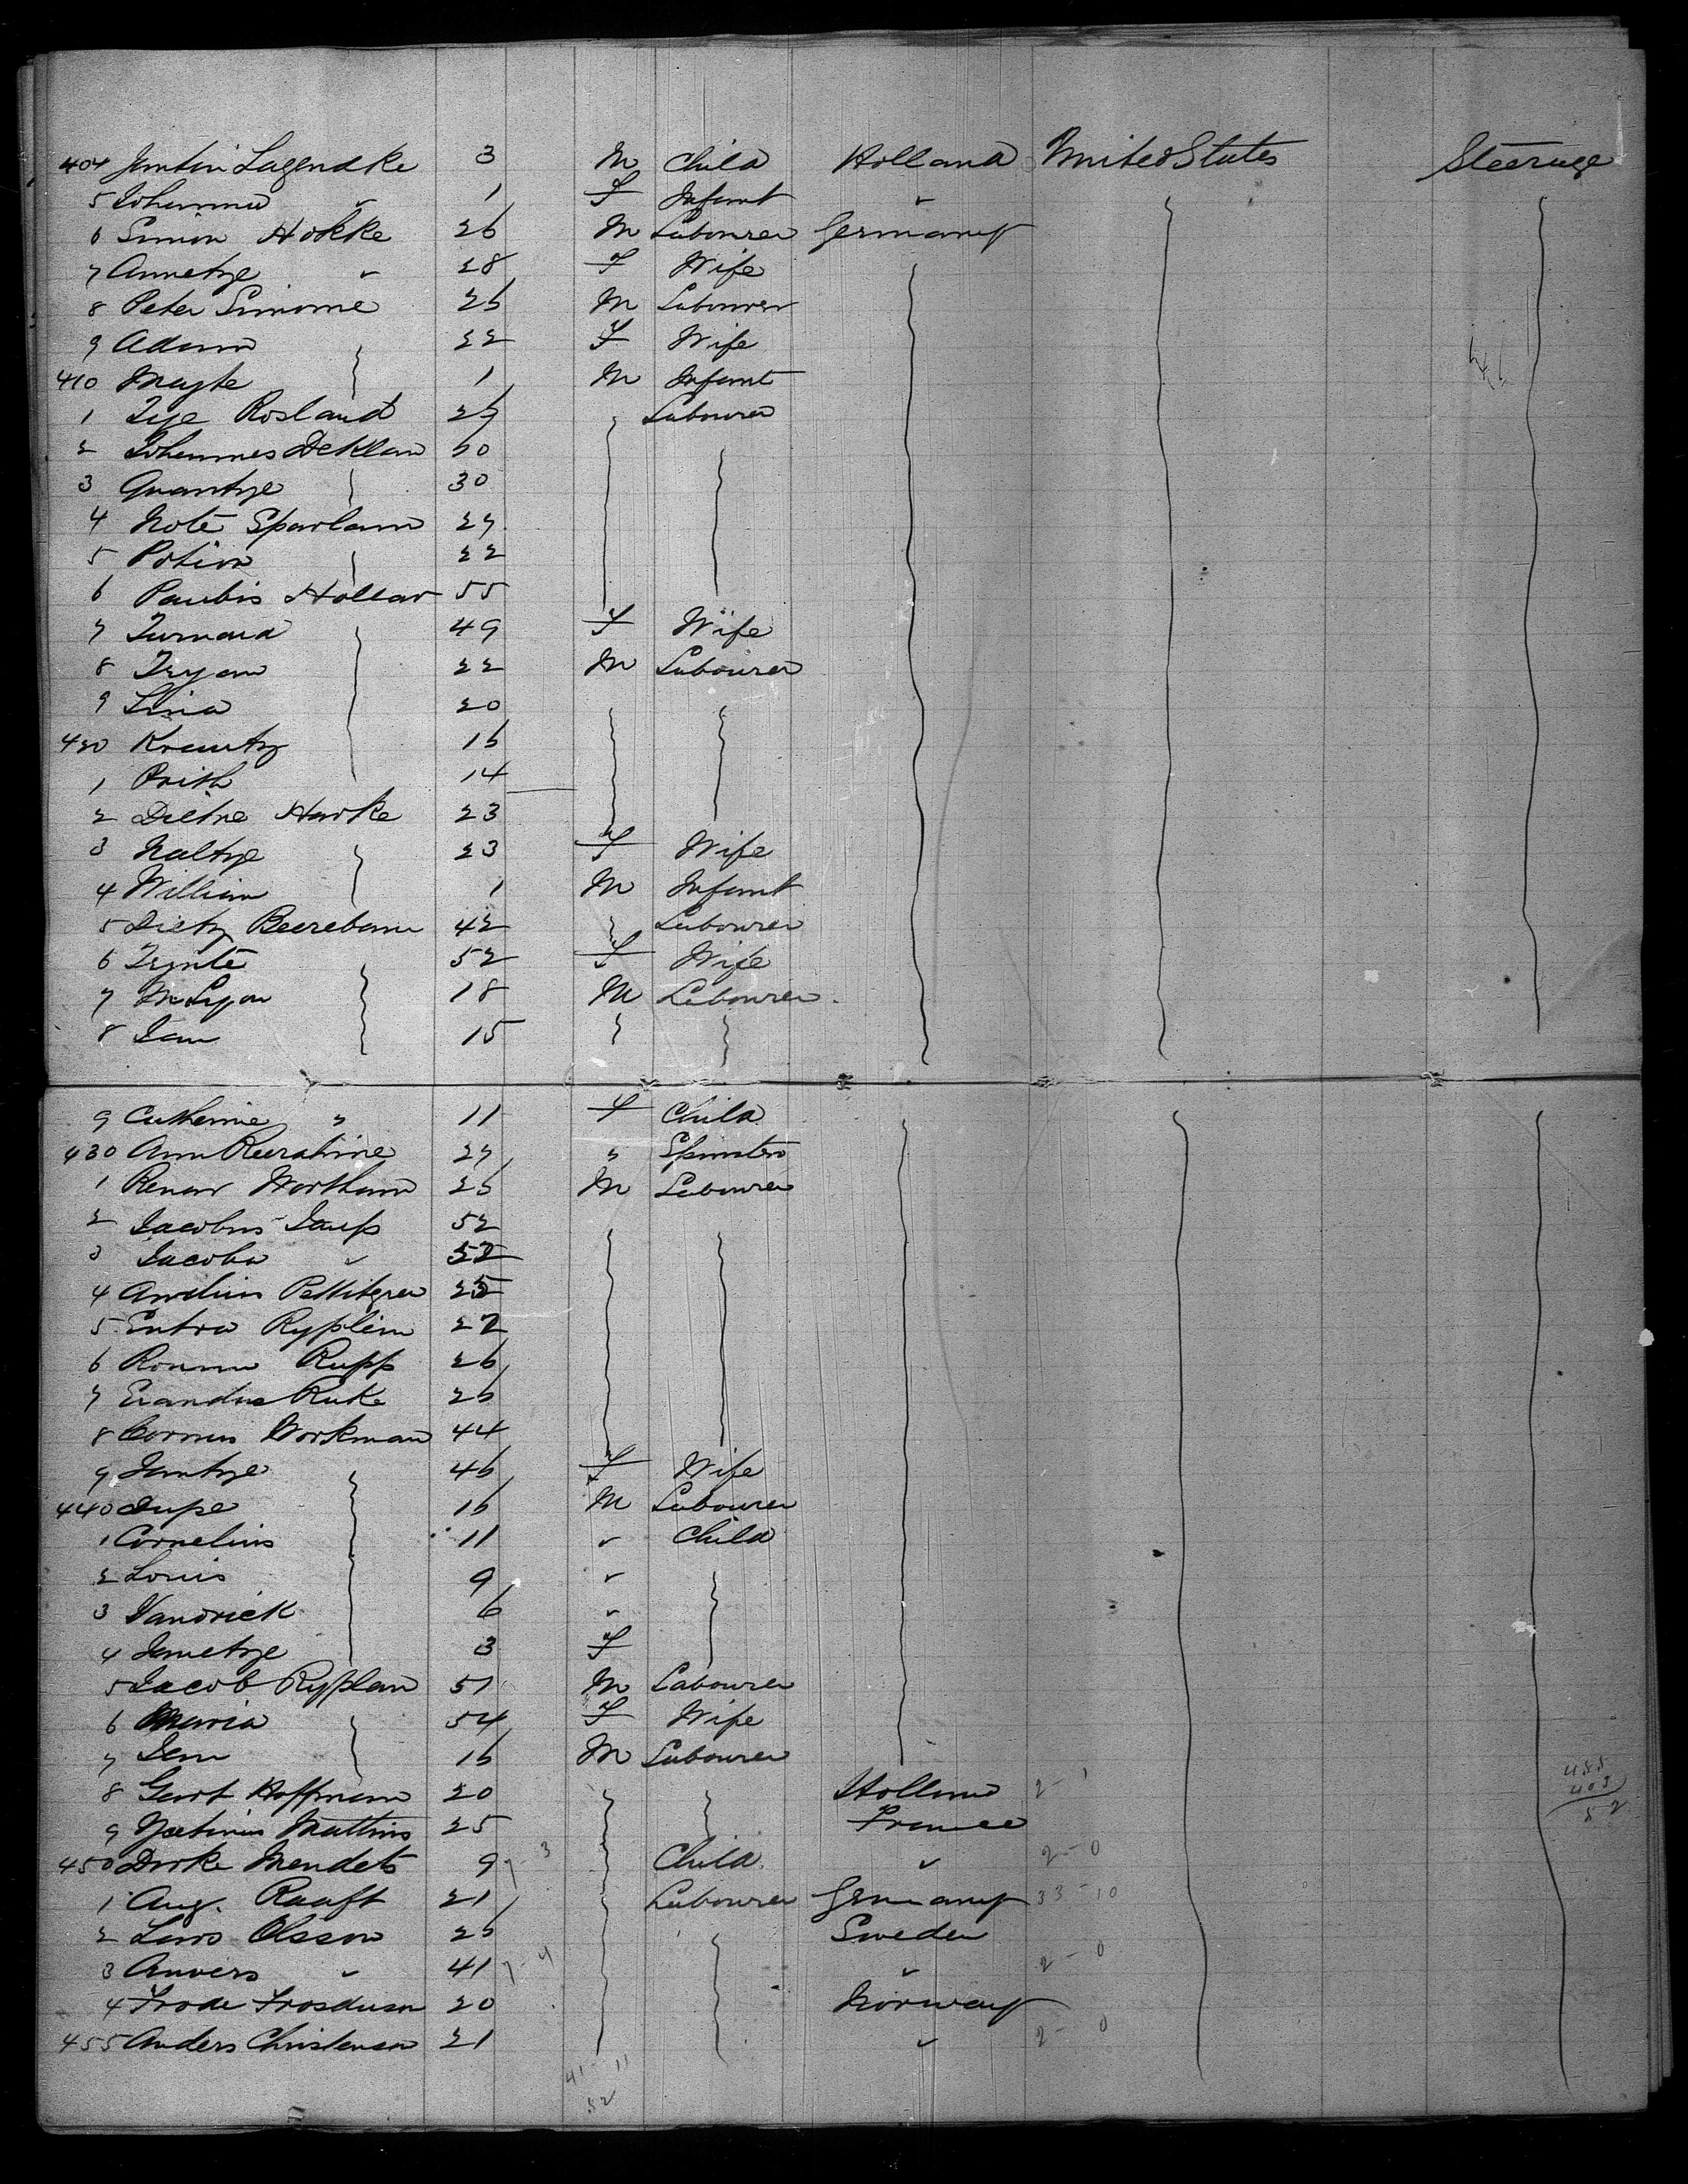 404 Jantin Lagendke 3 M Child Holland United States Steerage
5 Johanna " 1 F Infant "
6 Simon Hokke 26 M Labourer Germany
7 Annetye " 28 F Wife
8 Peter Simome 26 M Labourer
9 Adam 22 F Wife
410 Mayte 1 M Infant
1 Tye Rosland 27 Labourer
2 Johannes DeKlan 50
3 Quantye 30
4 Note Sparlann 27
5 Potion 22
6 Paubis Hollar 55
7 Turnard 49 F Wife
8 Tryan 22 M Labourer
9 Lina 20
420 Krauty 16
1 Prith 14
2 Dietne Harke 23
3 Naltye 23 F Wife
4 William 1 M Infant
5 Diety Beerebam 42 Labourer
6 Trynte 52 F Wife
7 18 M Labourer
8 Jan 15
9 Catherine " 11 F Child
430 Ann 27 " Spinster
1 Renar Wortham 26 M Labourer
2 Jacobus Jaup 52
3 Jacoba " 52
4 Pettitgrew
5 Entra Ryplem 27
6 Ronnu Rupp 26
7 Evandus Ruke 26
8 Cornus Workman 44
9 Jantye 46 F Wife
440 Jupe 16 M Labourer
1 Cornelius 11 " Child
2 Louis 9 "
3 Handrick 6 "
4 Jametye 3 F
5 Jacob Ryplan 51 M Labourer
6 Maria 54 F Wife
7 Jan 16 M Labourer
8 Gart Hoffmann 20 Holland 2-1 455
9 Mattins 25 France 403
52
450 Dirke Mendets 9 7-3 Child " 2-0
1 Aug. Raaft 21 Labourer Germany 33-10
2 Lars Olsson 26 Sweden
3 Anvers " 41 7-4 " 2-0
4 Frode Frosduson 20 Norway
455 Anders Christenson 21 " 2-0
41-11
52